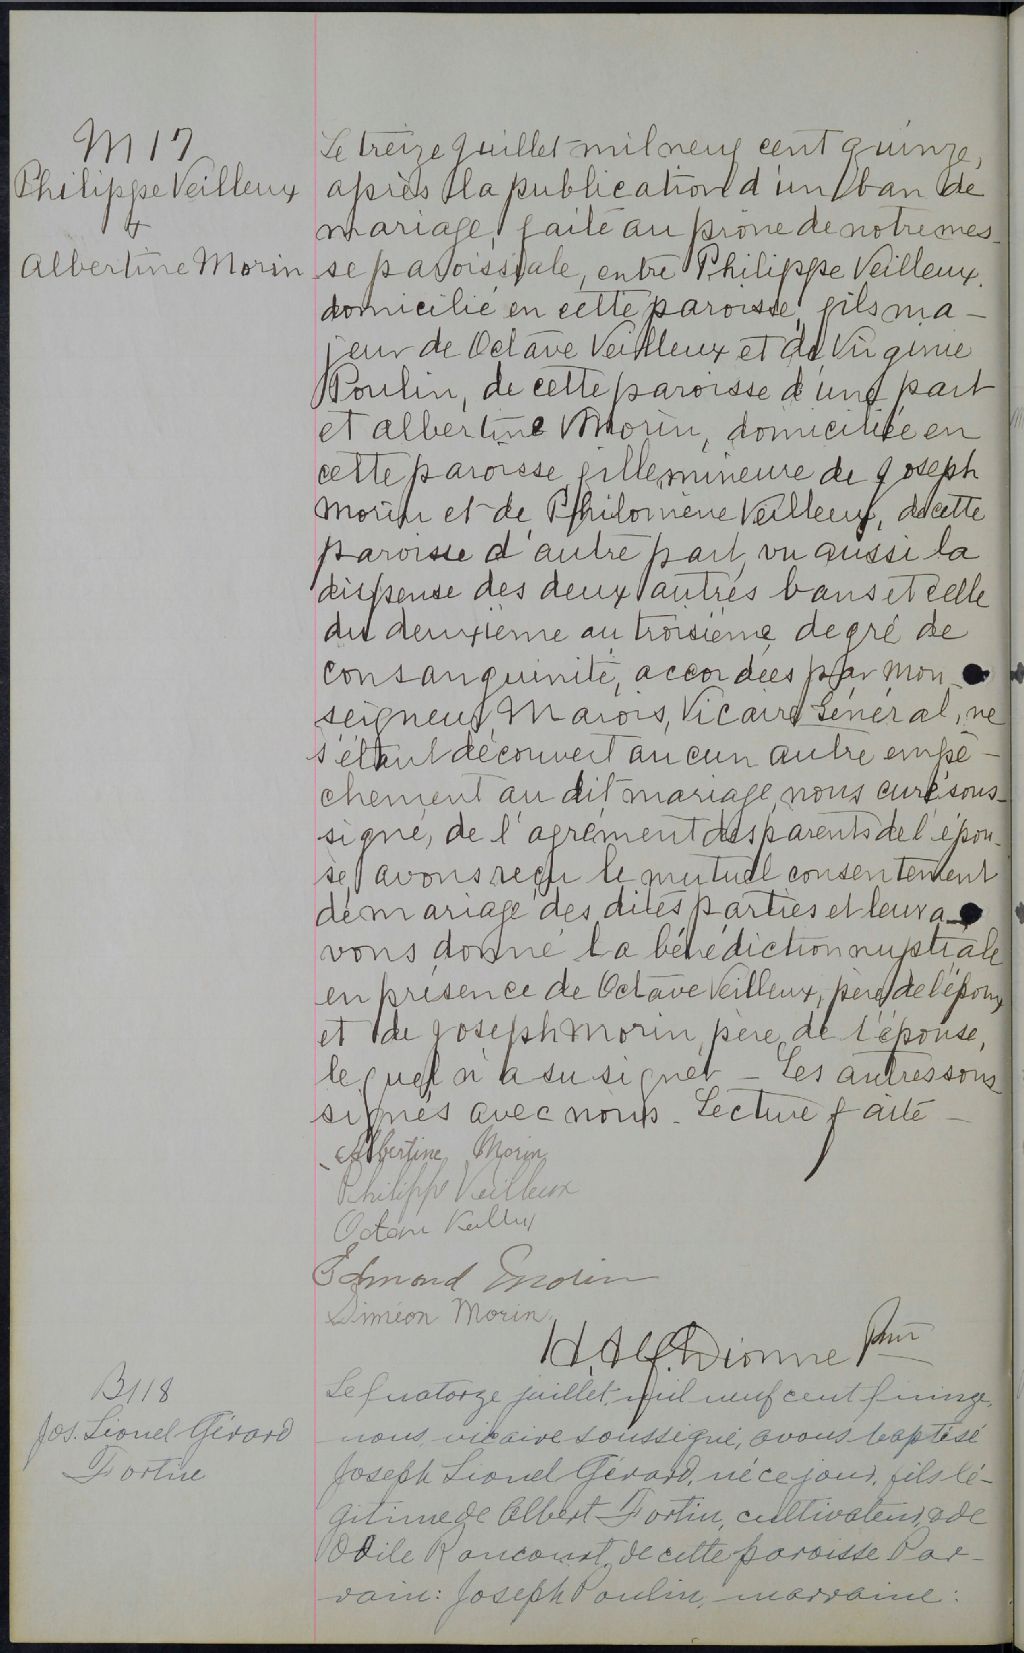 M 17
Philippe Veilleux
+
Albertine Morin
Le treize Juillet mil neuf cent quinze,
après la publication d'un ban de
mariage, faite au prône de notre mes-
se paroissiale, entre Philippe Veilleux,
domicilié en cette paroisse, fils ma-
jeur de Octave Veilleux et de Virginie
Poulin, de cette paroisse d'une part
et Albertine Morin, domiciliée en
cette paroisse, fille mineure de Joseph
Morin et de Philomène Veilleux, de cette
paroisse d'autre part, vu aussi la
dispense des deux autres bans et celle
du deuxième au troisième degré de
consanguinité, accordées par Mon-
seigneur Marois, Vicaire Général, ne
s'étant découvert aucun autre empê-
chement au dit mariage, nous curé sous-
signé, de l'agrément des parents de l'épou-
se, avons reçu le mutuel consentement
de mariage des dites parties et leur a-
vons donné la bénédiction nuptiale
en présence de Octave Veilleux, père de l'époux
et de Joseph Morin, père de l'épouse,
lequel n'a su signer - Les autres sous-
signés avec nous - Lecture faite -
Albertine Morin
Philippe Veilleux
Octave Veilleux
Edmond Morin
Siméon Morin
H. Alf. Dionne Ptre
B 118
Jos. Lionel Gérard
Fortin
Le quatorze juillet, mil neuf cent quinze,
nous vicaire soussigné, avons baptisé
Joseph Lionel Gérard, né ce jour, fils lé-
gitime de Albert Fortin, cultivateur, & de
Odile Rancourt, de cette paroisse Par-
rain: Joseph Poulin, marraine: